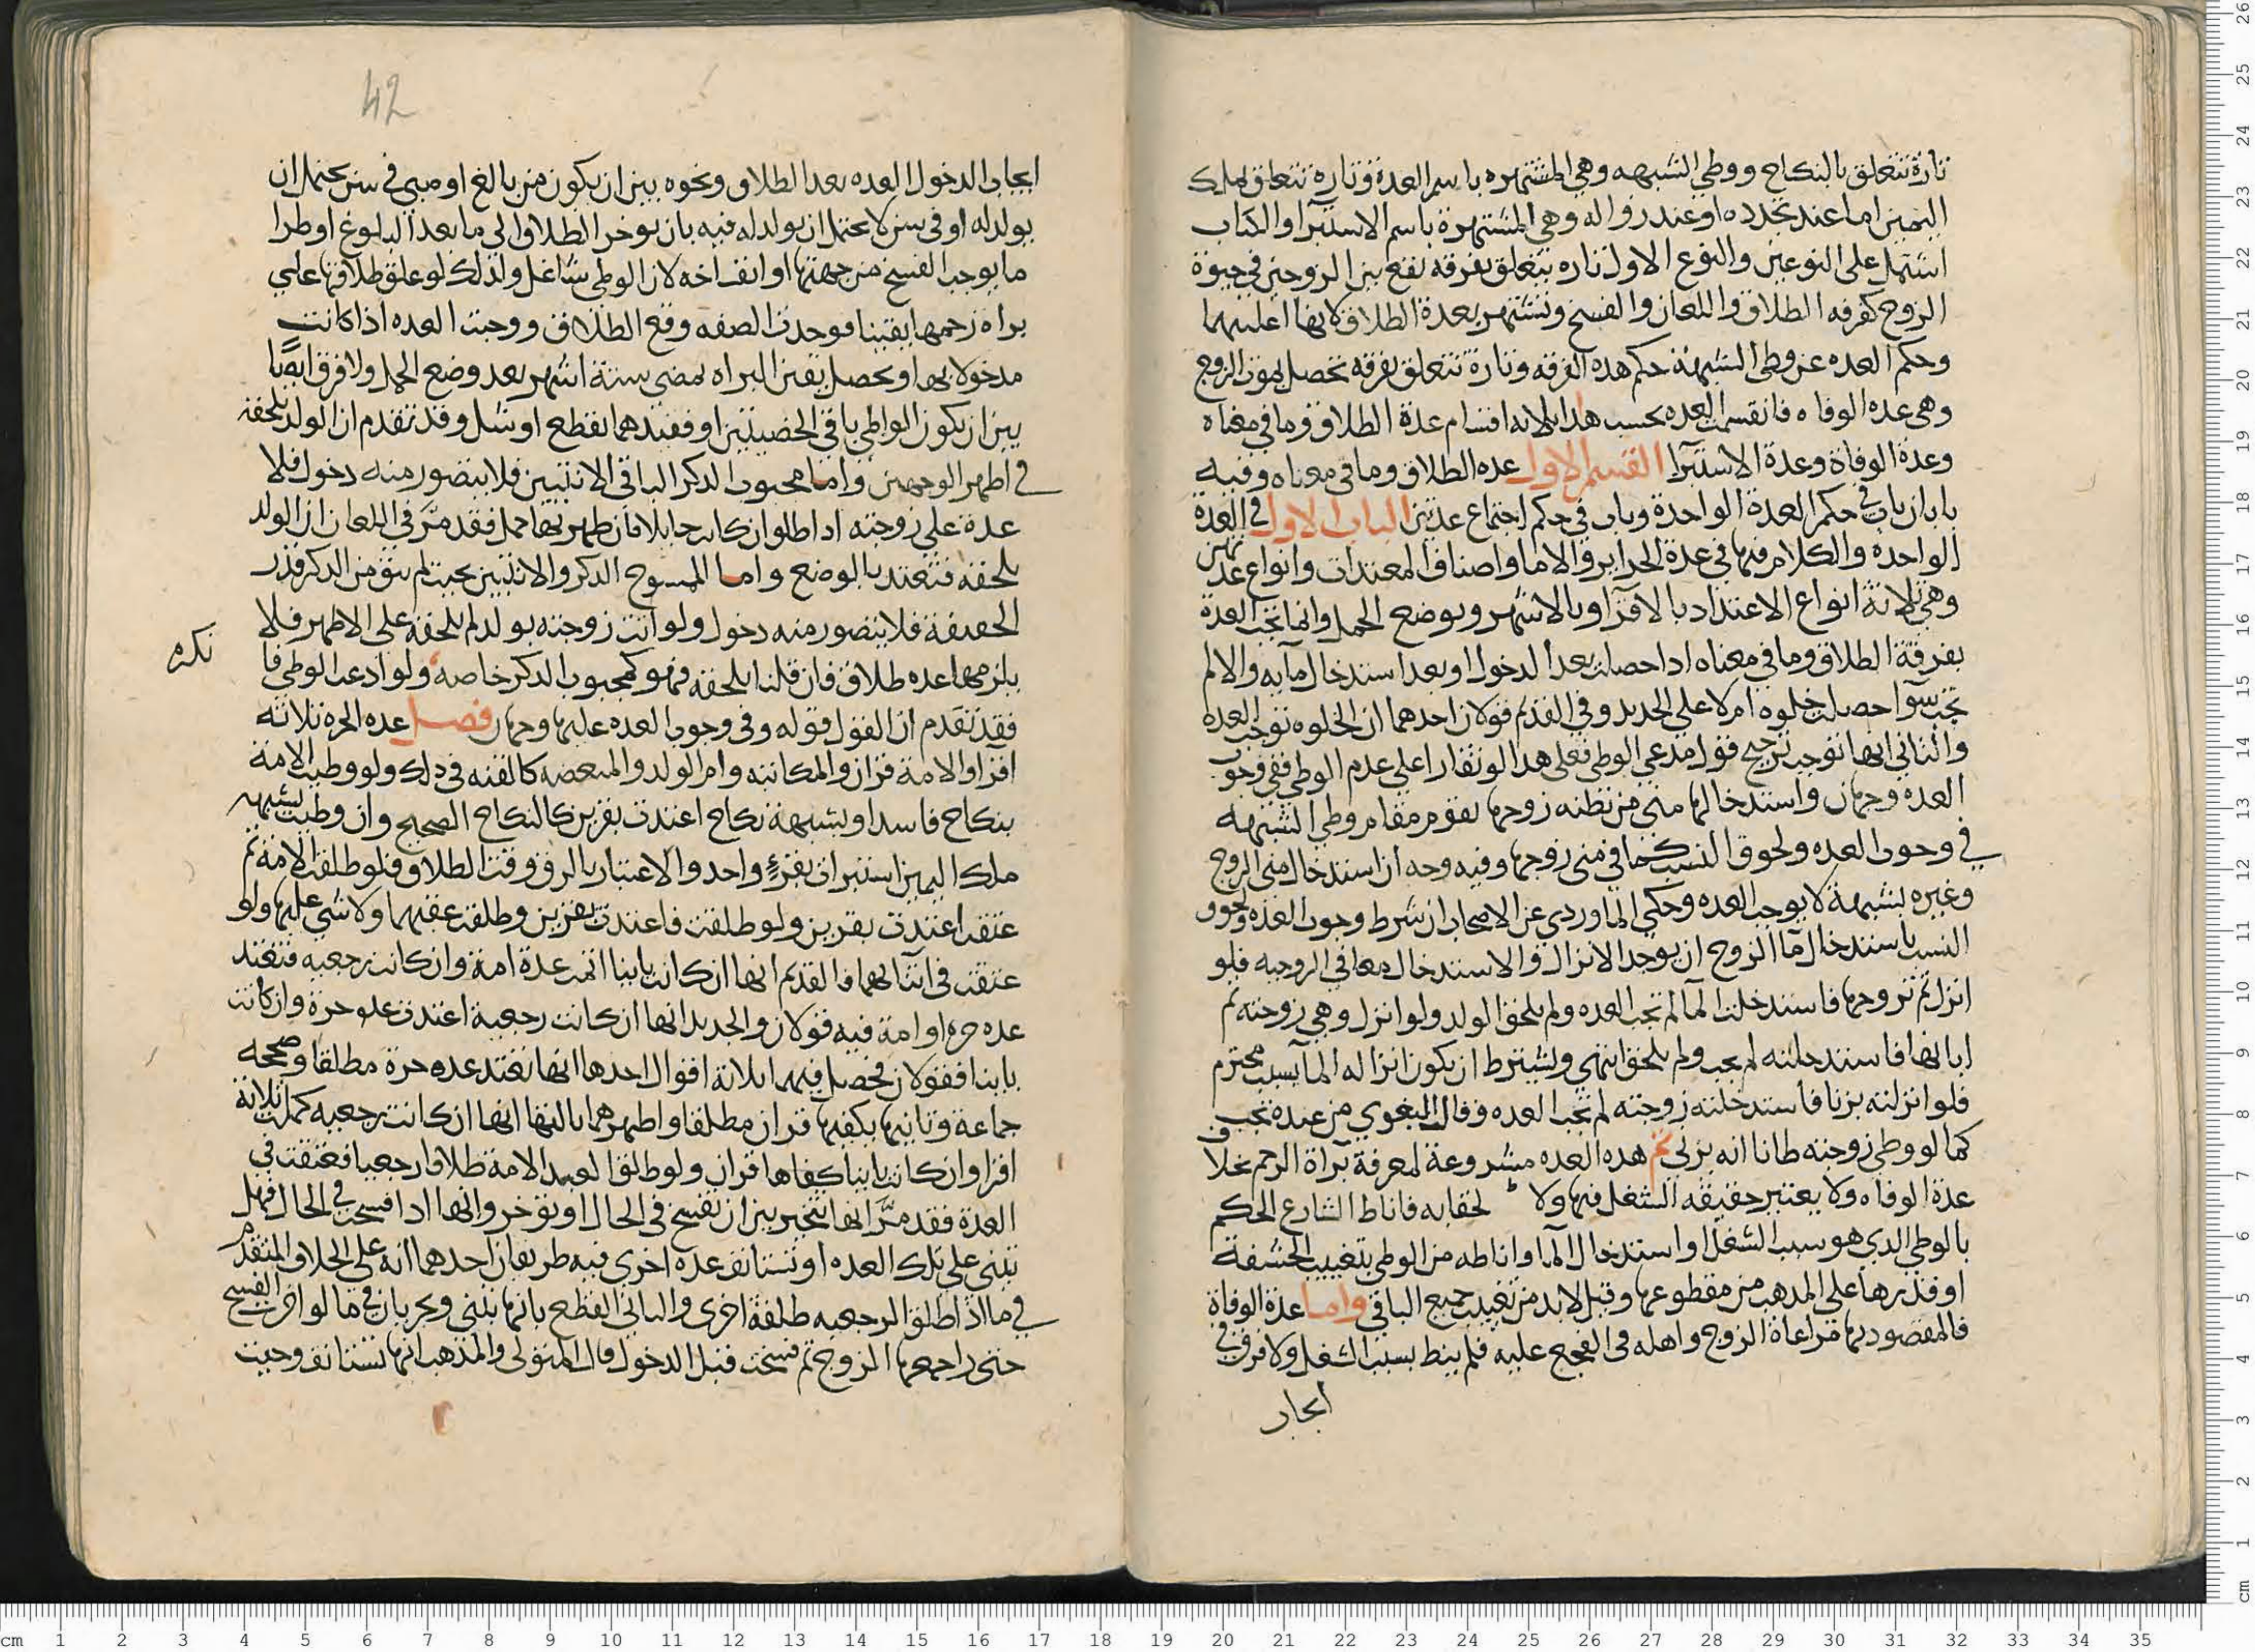 تارة تتعلق بالنكاح ووطي الشبهه وهي المشتهره باسم العدة وتارة تتعلق بملك
اليمين اما عند تجدده او عند زواله وهي المشتهرة باسم الاستبرا والكتاب
اشتمل على النوعين والنوع الاول تاره يتعلق بفرقه تقع بين الزوجين في حيوة
الزوج كفرقه الطلاق واللعان والفسخ وتشتهر بعدة الطلاق لانها اغلبهما
وحكم العده عن وطي الشبهة حكم هده الفرقه وتارة تتعلق بفرقه تحصل بموت الزوج
وهي عده الوفاه فانقسمت العده بحسب هدا ثلاثه اقسام عدة الطلاق وما في معناه
وعدة الوفاة وعدة الاستبرا القسم الاول عده الطلاق وما في معناه وفيه
بابان باب في حكم العدة الواحدة وباب في حكم اجتماع عدتين الباب الاول في العدة
الواحدة والكلام فيها في عدة الحراير والاما واصناف المعتدات وانواع عدتهن
وهي ثلاثة انواع الاعتداد بالاقرا وبالاشهر وبوضع الحمل وانما تجب العدة
بفرقة الطلاق وما في معناه ادا حصلت بعد الدخول او بعد استدخال مآيه والا لم
تجب سوا حصلت خلوه ام لا على الجديد وفي القديم قولان احدهما ان الخلوه توجب العده
والثاني انها توجب ترجيح قول مدعي الوطي فعلى هدا لو تقارا على عدم الوطي ففي وجوب
العده وجهان واستدخالها مني من تظنه زوجها يقوم مقام وطي الشبهه
في وجوب العده ولحوق النسب كما في مني زوجها وفيه وجه ان استدخال مني الزوج
وغيره بشبهة لا يوجب العده وحكي الماوردي عن الاصحاب ان شرط وجوب العده ولحوق
النسب باستدخال مآ الزوج ان يوجد الانزال والاستدخال معا في الزوجيه فلو
انزل ثم تزوجها فاستدخلت المآ لم تجب العده ولم يلحق الولد ولو انزل وهي زوجته ثم
ابانها فاستدخلته لم يجب ولم يلحق انتهي ويشترط ان يكون انزاله المآ بسبب محترم
فلو انزلته بزنا فاستدخلته زوجته لم تجب العده وقال البغوي من عنده تجب
كما لو وطي زوجته ظانا انه يزني ثم هده العده مشروعة لمعرفة برآة الرحم بخلاف
عدة الوفاه ولا يعتبر حقيقه الشغل فيها ولا لخفايه فاناط الشارع الحكم
بالوطي الدي هو سبب الشغل او استدخال المآ واناطه من الوطي بتغييب الحشفة
او قدرها على المدهب من مقطوعها وقيل لابد من تغييب جميع الباقي واما عدة الوفاة
فالمقصود بها مراعاة الزوج واهله في الفجع عليه فلم ينط بسبب الشغل ولا فرق في
ايجاب
42
ايجاب الدخول العده بعد الطلاق ونحوه بين ان يكون من بالغ او صبي في سن يحتمل ان
يولد له او في سن لا يحتمل ان يولد له فيه بان يوخر الطلاق الي ما بعد البلوغ او طرا
ما يوجب الفسخ من جهتها او انفساخه لان الوطي شاغل ولدلك لو علق طلاقها علي
براه رحمها يقينا فوجدت الصفه وقع الطلاق ووجبت العده اذا كانت
مدخولا بها ويحصل يقين البراه بمضي ستة اشهر بعد وضع الحمل ولا فرق ايضًا
بين ان يكون الواطي باقي الخصيتين او فقيدهما بقطع او شل وقد تقدم ان الولد يلحقه
في اظهر الوجهين واما مجبوب الدكر الباقي الانثيين فلا يتصور منه دخول فلا
عدة علي زوجته ادا طلق وان كانت حايلا فان ظهر بها حمل فقد مرَّ في اللعان ان الولد
يلحقه فتعتد بالوضع واما الممسوح الدكر والانثيين بحيث لم يبق من الدكر قدر
الحشفة فلا يتصور منه دخول ولو اتت زوجته بولد لم يلحقه على الاظهر فلا
يلزمها عده طلاق فان قلنا يلحقه فهو كمجبوب الدكر خاصه ولو ادعت الوطي فا
نكره
فقد تقدم ان القول قوله وفي وجوب العده عليها وجهان فصل عده الحره ثلاثه
اقرا والامة قران والمكاتبه وام الولد والمبعضه كالقنه في دلك ولو وطيت الامة
بنكاح فاسد او بشبهة نكاح اعتدت بقرين كالنكاح الصحيح وان وطيت بشبهه
ملك اليمين استبرات بقرءٍ واحد والاعتبار بالرق وقت الطلاق فلو طلقت الامة ثم
عتقت اعتدت بقرين ولو طلقت فاعتدت بقرين وطلقت عقبهما ولا شي عليها ولو
عتقت في اثنآيها فالقديم انها ان كانت باينا اتمت عدة امة وان كانت رجعيه فتعتد
عده حره او امة فيه قولان والجديد انها ان كانت رجعية اعتدت عده حرة وان كانت
باينا فقولان فحصل فيهما ثلاثة اقوال احدها انها تعتد عده حرة مطلقا وصححه
جماعة وثانيها يكفيها قران مطلقا واظهرهما بالتها انها ان كانت رجعيه كملت ثلاثة
اقرا وان كانت باينا كفاها قران ولو طلق العبد الامة طلاقا رجعيا فعتقت في
العدة فقد مرَّ انها تتخير بين ان تفسخ في الحال او توخر وانها ادا فسخت في الحال فهل
تبني علي تلك العده او تستانف عدة اخري فيه طريقان احدهما انه علي الخلاف المتقدم
في ما اذا طلق الرجعيه طلقة اخرى والثاني القطع بانها تبني ويجريان في ما لو اخرت الفسخ
حتي راجعها الزوج ثم فسخت قبل الدخول قال المتولي والمذهب انها تستانف وحيث